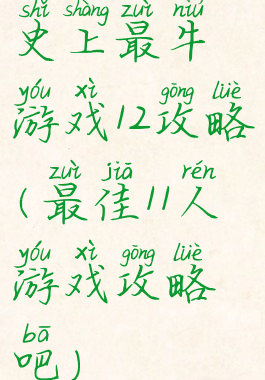 shǐ shàng zuì niú
史上最牛
yóu xì gōng lüè
游戏12攻略
zuì jiā rén
(最佳11人
yóu xì gōng lüè
游戏攻略
bā
吧)